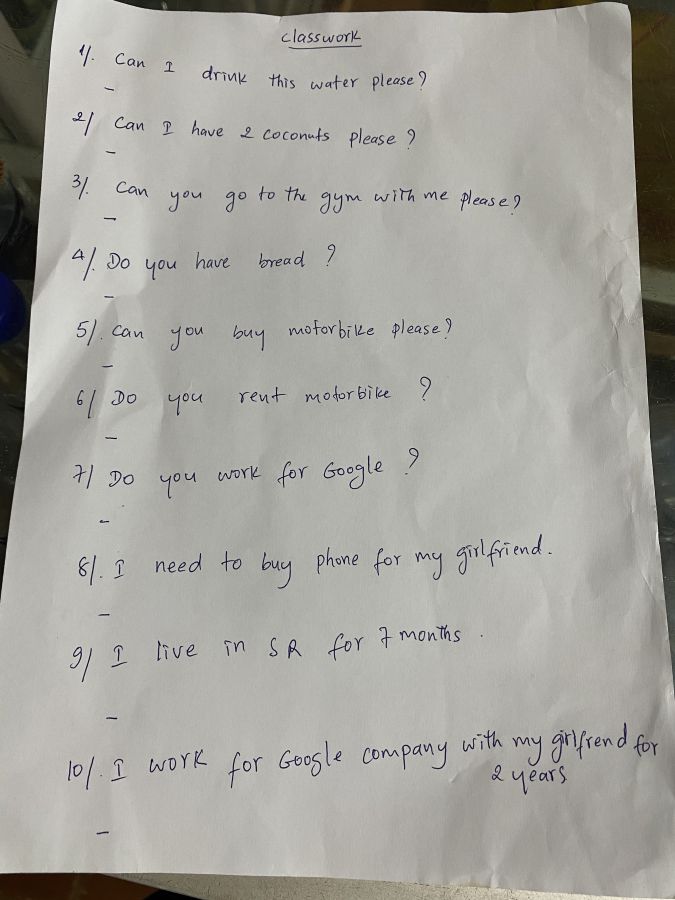 classwork
1/. Can I drink this water please?
-
2/ Can I have 2 coconuts please?
-
3/. Can you go to the gym with me please?
-
4/. Do you have bread?
-
5/. Can you buy motorbike please?
-
6/ Do you rent motorbike?
-
7/ Do you work for Google?
-
8/. I need to buy phone for my girlfriend.
-
9/ I live in SR for 7 months.
-
10/. I work for Google company with my girlfrend for
2 years
-